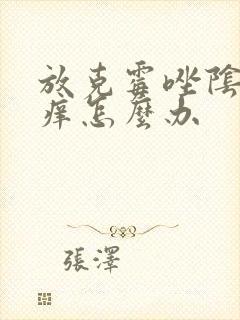 放克霉唑陰
癢怎麼办
張澤